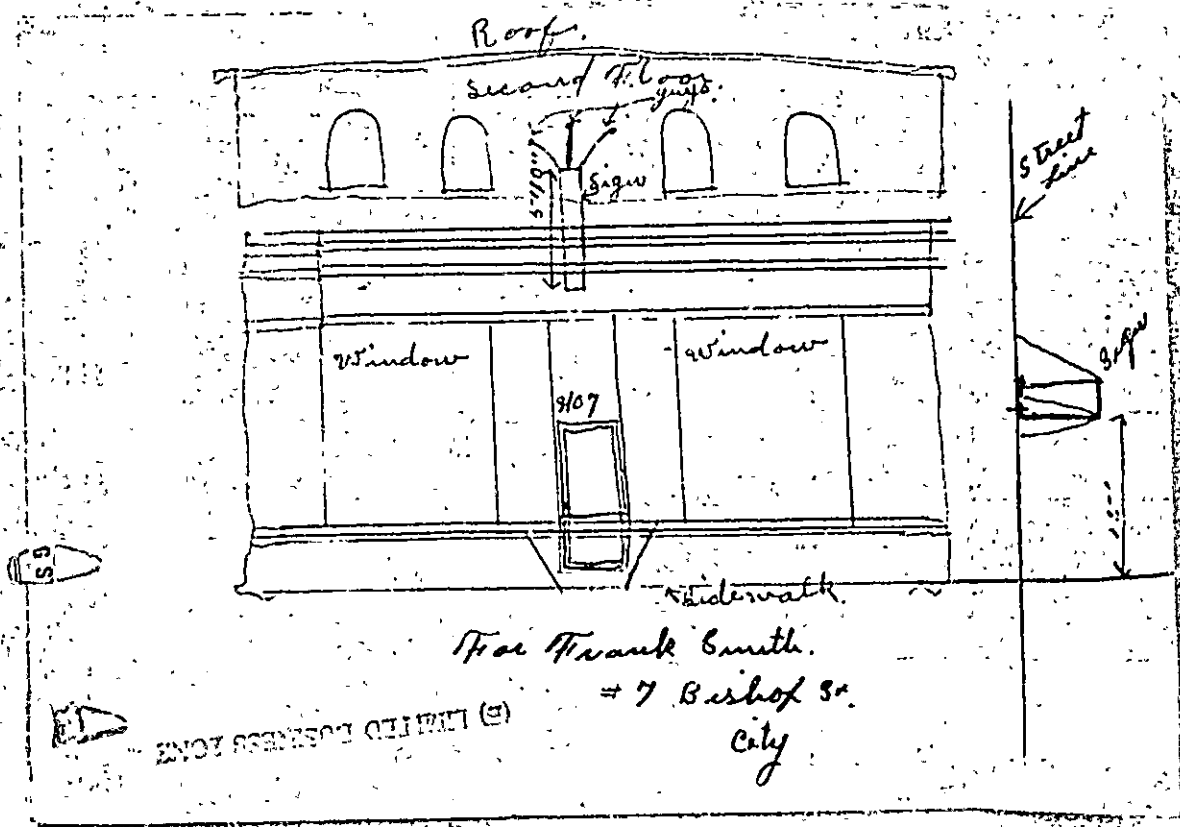 Roof.
Second Floor
guys.
Sign
Street
Line
Window
Window
Sign
Sidewalk.
For Frank Smith.
#7 Bishop St.
City
(E) LIMITED BUSINESS ZONE